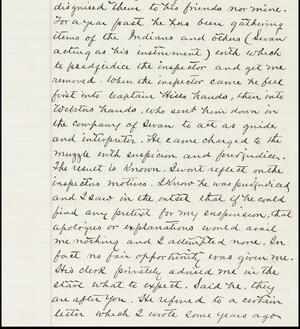 disguised them to his friends nor mine.
For a year past he has been gathering
items of the Indians and others (Swan
acting as his instrument) with which
to predjudice the inspector and get me
removed. When the inspector came he fell
first into Captain Hills hands, then into
Websters hands, who sent him down in
the company of Swan to act as guide
and interpreter. He came charged to the
muzzle with suspicion and prejudice.
The result is known. I wont reflect on the
inspectors motives. I know he was prejudiced
and I saw in the outset that if he could
find any pretext for my suspension, that
apologies or explanations would avail
me nothing and I attempted none. In
fact no fair opportunity was given me.
His clerk privately advised me in the
start what to expect. Said he, they
are after you. He refered to a certain
letter which I wrote some years ago